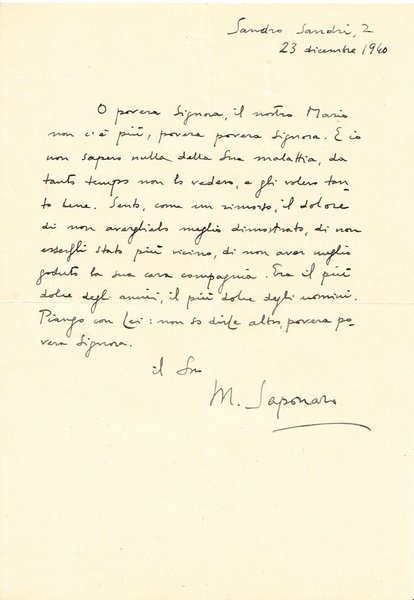 Sandro Sandri, 2
23 dicembre 1940
O povera Signora, il nostro Mario
non c'è più, povera povera Signora. E io
non sapevo nulla della Sua malattia, da
tanto tempo non lo vedevo, e gli volevo tan-
to bene. Sento, come un rimorso, il dolore
di non averglielo meglio dimostrato, di non
essergli stato più vicino, di non aver meglio
goduto la sua cara compagnia. Era il più
dolce degli amici, il più dolce degli uomini.
Piango con Lei: non so dirLe altro, povera po-
vera Signora.
il Suo
M. Saponaro